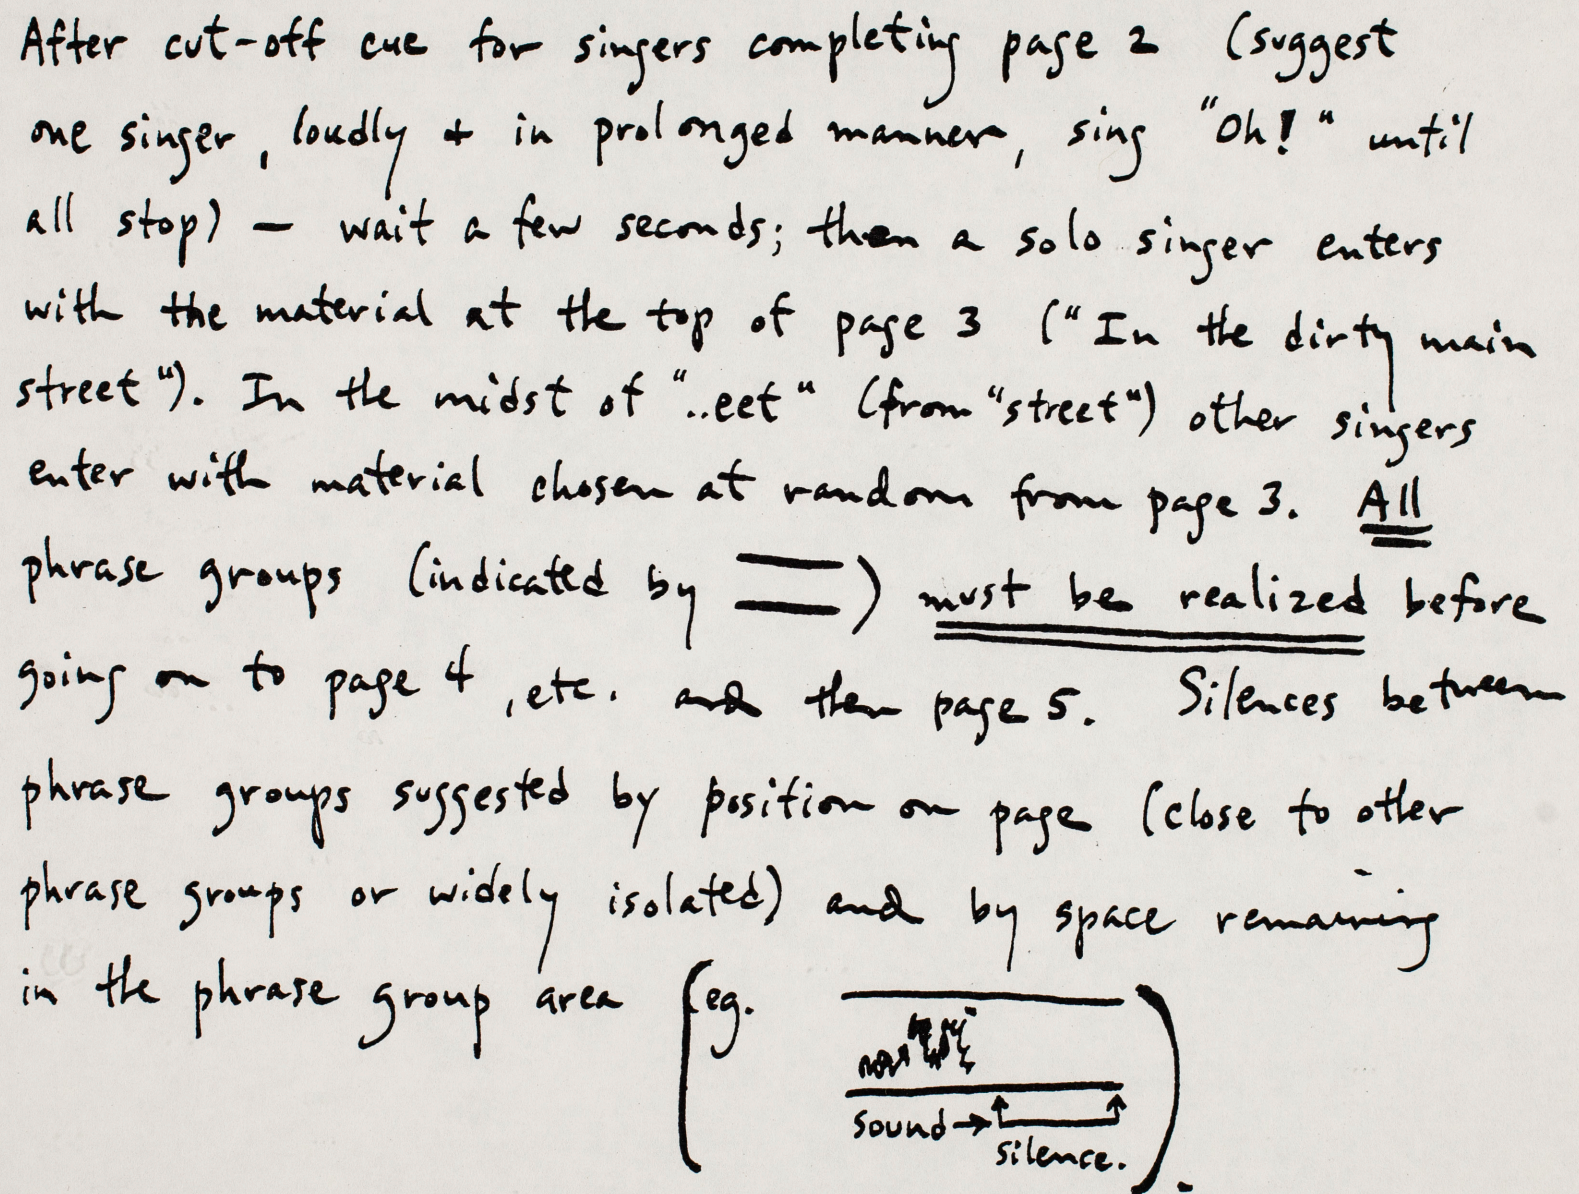 After cut-off cue for singers completing page 2 (suggest
one singer, loudly + in prolonged manner, sing "Oh!" until
all stop) — wait a few seconds; then a solo singer enters
with the material at the top of page 3 ("In the dirty main
street"). In the midst of "..eet" (from "street") other singers
enter with material chosen at random from page 3. All
phrase groups (indicated by ) must be realized before
going on to page 4, etc. and then page 5. Silences between
phrase groups suggested by position on page (close to other
phrase groups or widely isolated) and by space remaining
in the phrase group area (eg.
sound→
silence. ).